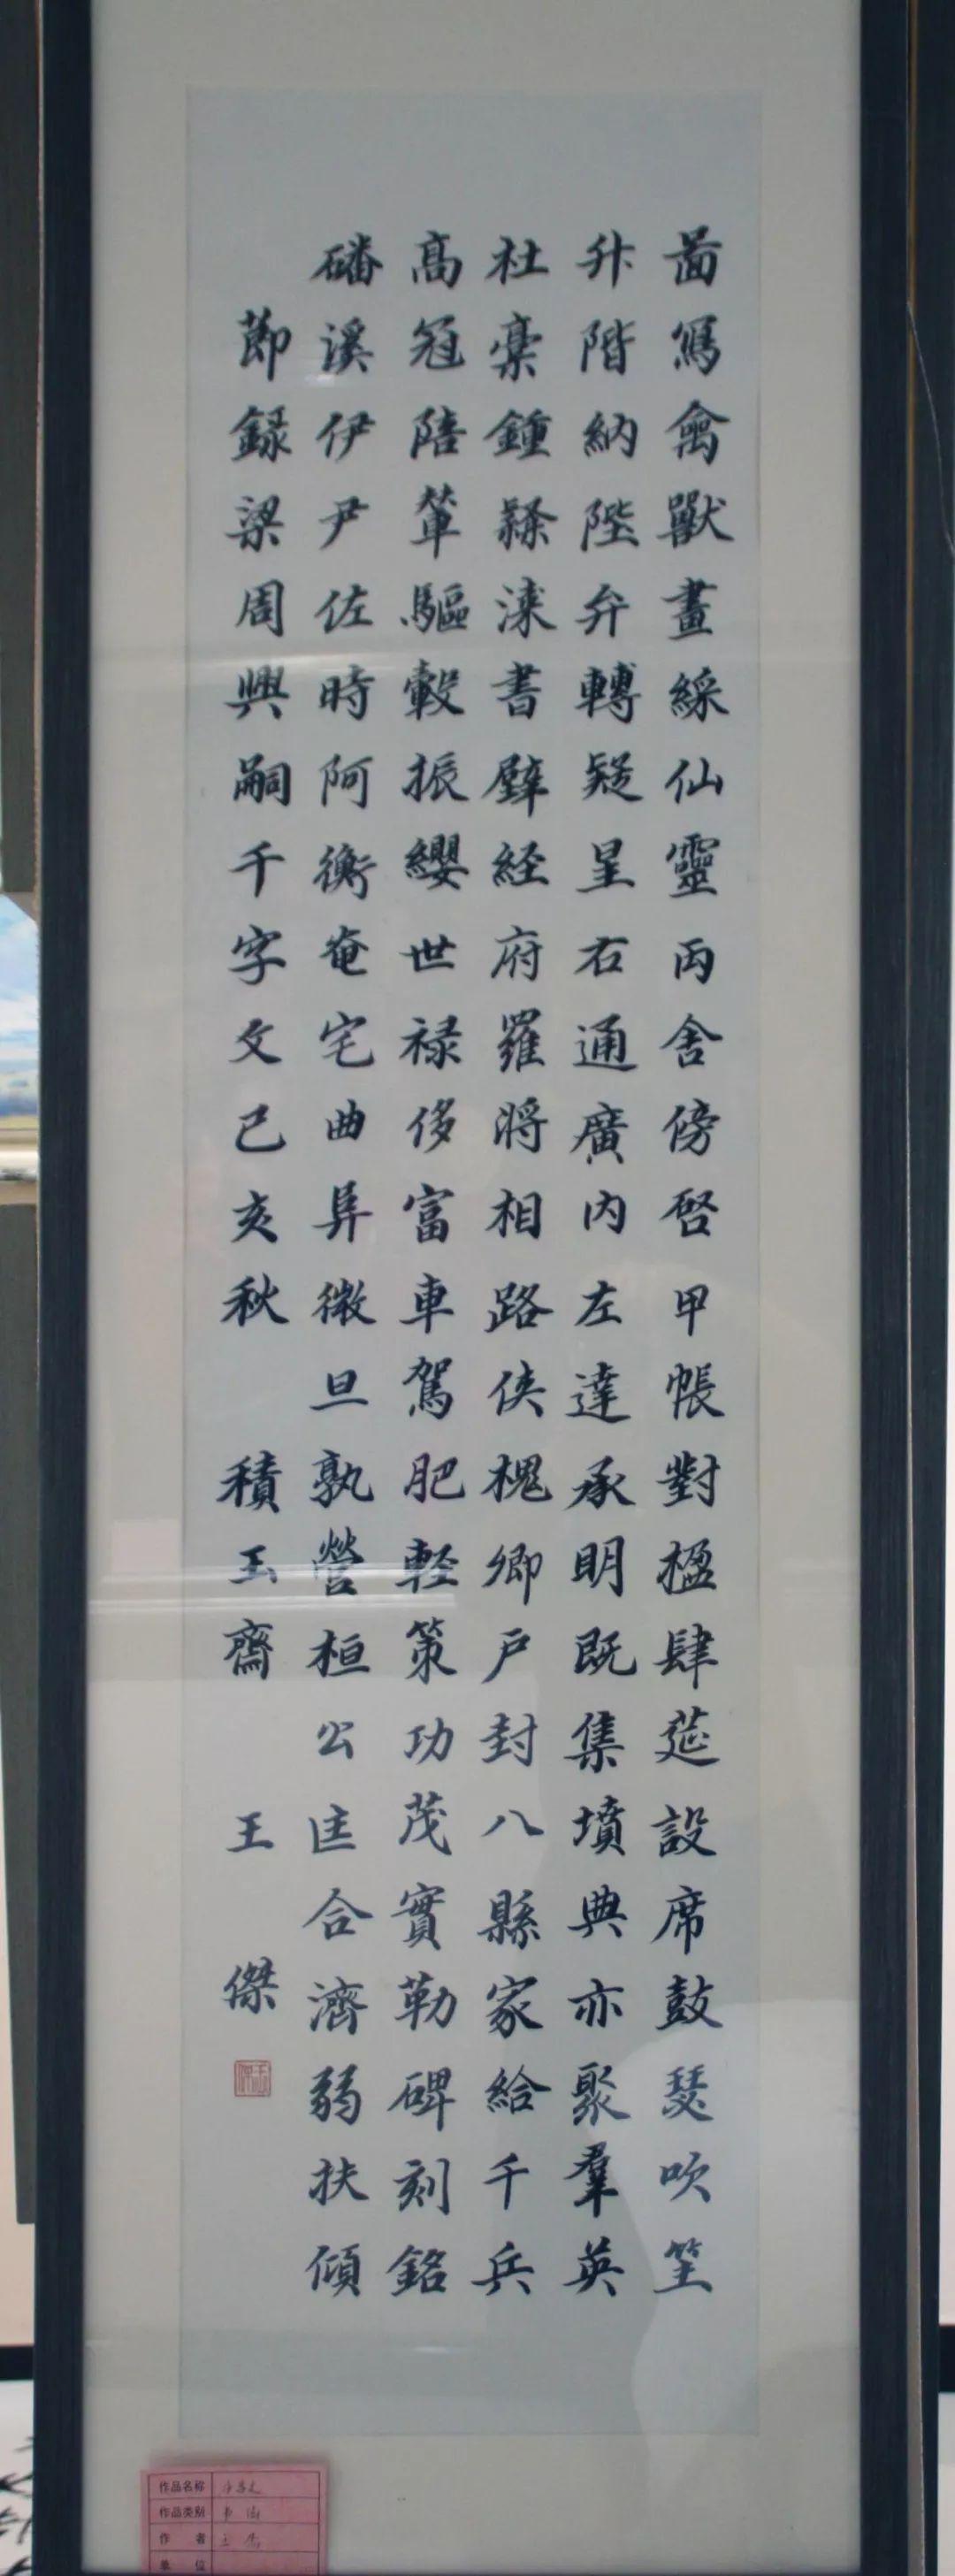 啚寫禽獸畫綵仙靈丙舍傍啓甲帳對楹肆莚設席鼓瑟吹笙
升階納陛弁轉疑星右通廣内左達承明既集墳典亦聚羣英
杜稾鍾隸漆書壁経府羅將相路侠槐卿户封八縣家給千兵
髙冠陪輦驅轂振纓世禄侈富車駕肥軽策功茂實勒碑刻銘
磻溪伊尹佐時阿衡奄宅曲阜微旦孰營桓公匡合濟弱扶傾
節録梁周興嗣千字文己亥秋 積玉齋 王 傑
作品名称 千字文
作品类别 书法
作者 王杰
单位